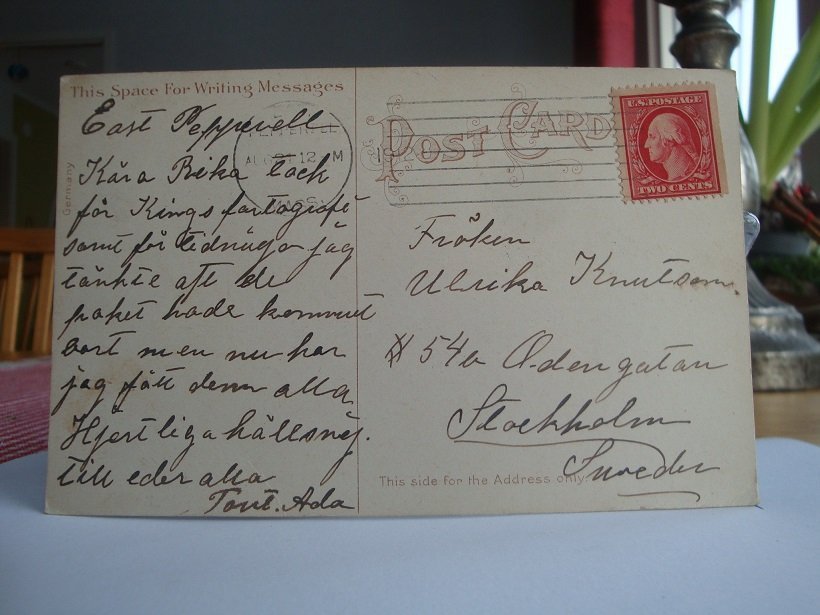 This Space For Writing Messages
East Pepperell
Kära Rika tack
för Kings fortografi
samt för tidningar jag
tänkte att de
paket hade kommit
bort men nu har
jag fått dem alla
Hjertliga hällsng.
till eder alla
Tant. Ada
Germany
12 M
POST CARD
U.S. POSTAGE
TWO CENTS
Fröken
Ulrika Knutson.
54b Odengatan
Stockholm
Sweden
This side for the Address only.